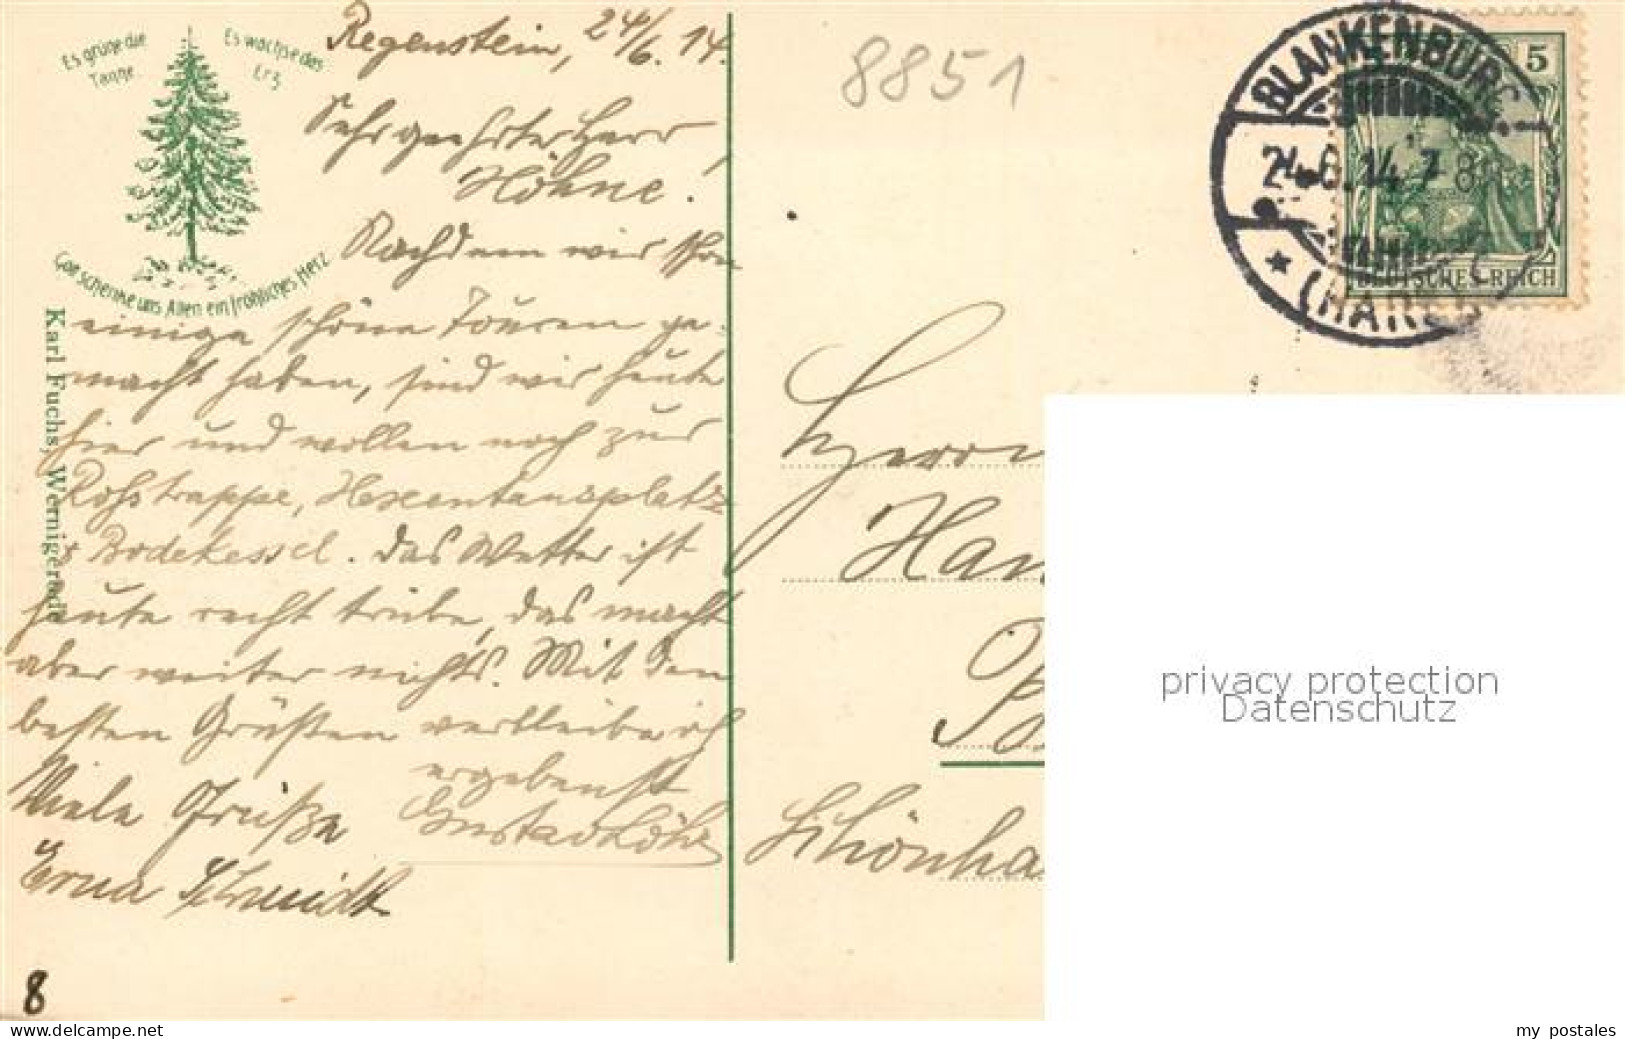 Es grüne die
Tanne
Es wachse das
Erz
Gott schenke uns Allen ein fröhliches Herz
Karl Fuchs, Wernigerode
Regenstein, 24/6. 14.
Sehr geehrter Herr
Höhne!
Nachdem wir schon
einige schöne Touren ge-
macht haben, sind wir heute
hier und wollen noch zur
Rosstrappe, Hexentanzplatz
+ Bodekessel. Das Wetter ist
heute recht trübe, das macht
aber weiter nichts. Mit den
besten Grüßen verbleibe ich
ergebenst
Gustav
Viele Grüße
Erna Schmidt
8
8851
BLANKENBURG
24.6.14. 7-8
(HARZ)
5
DEUTSCHES REICH
Herrn
Han
privacy protection
Datenschutz
my-postales.com
my postales